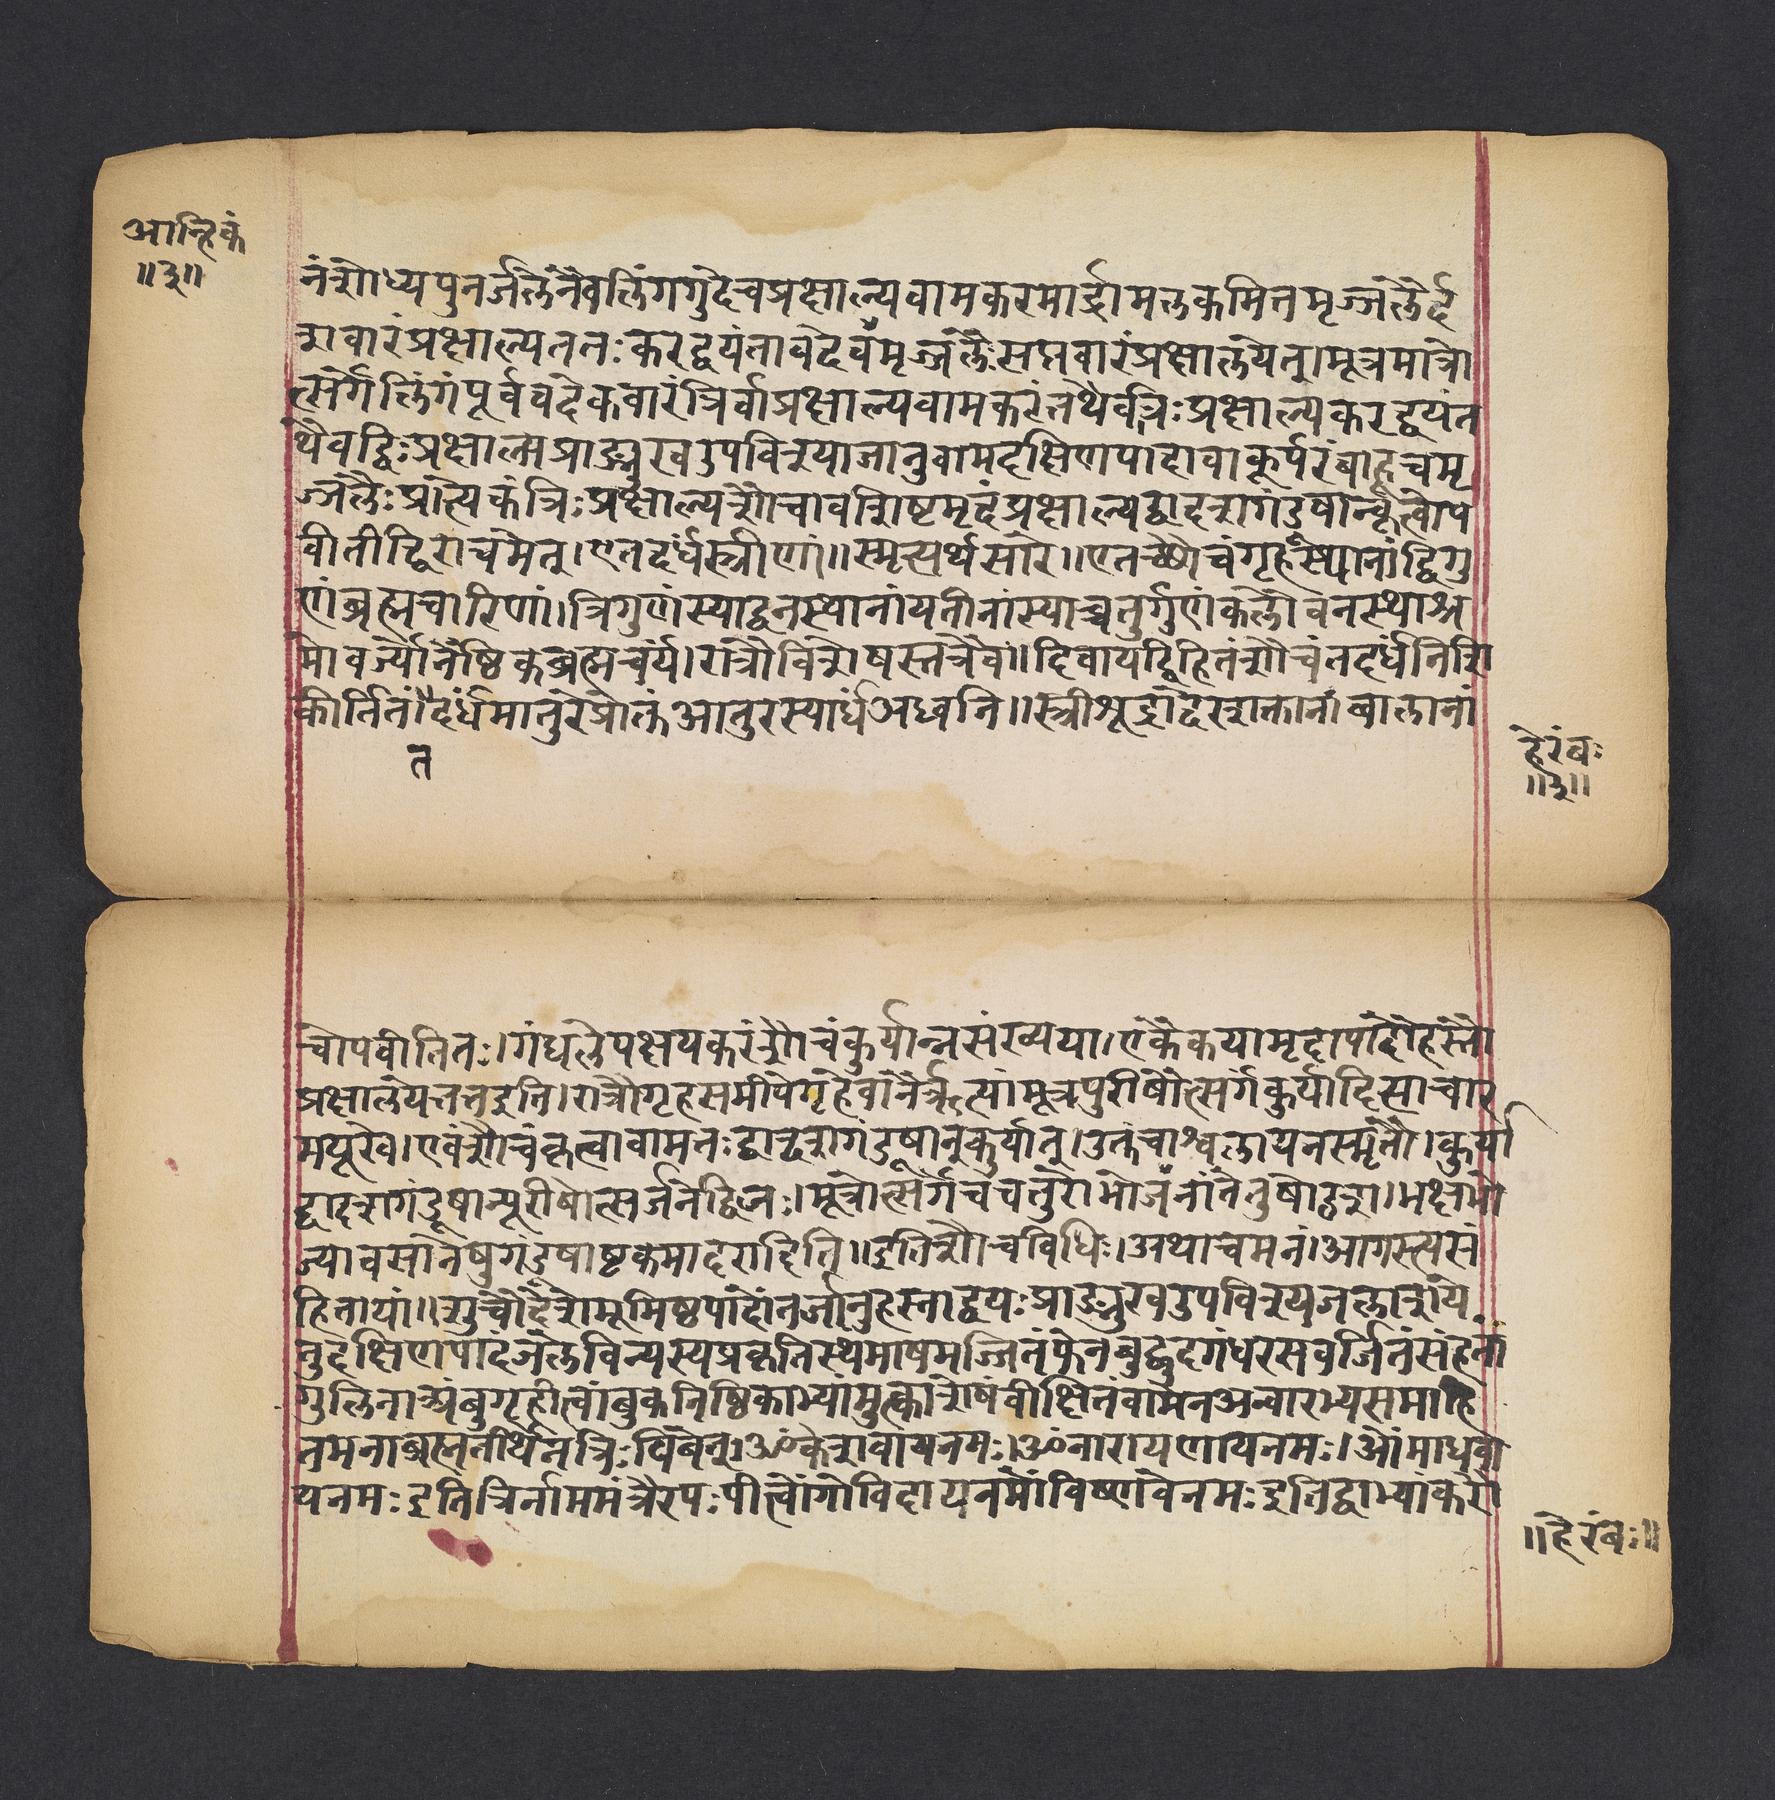 आन्हिकं
॥३॥
नंशोध्यपुनर्जलेनैवलिंगगुदेचप्रक्षाल्यवामकरमार्द्रामलकमितमृज्जलैर्द
शवारंप्रक्षाल्यततः करद्वयंतावदेवमृज्जलैः सप्तवारंप्रक्षालयेत्।मूत्रमात्रो
त्सर्गेलिंगंपूर्ववदेकवारंत्रिर्वाप्रक्षाल्यवामकरंतथैवत्रिः प्रक्षाल्यकरद्वयंत
थैवद्विः प्रक्षाल्यप्राङ्मुखउपविश्याजानुवामदक्षिणपादावाकूर्परंबाहूचमृ
ज्जलैः प्रत्येकंत्रिः प्रक्षाल्यशौचावशिष्टमृदंप्रक्षाल्यद्वादशगंडुषान्कृत्वोप
वीतीद्विराचमेत्।एतदर्धंस्त्रीणां॥स्मृत्यर्थसारे॥एतच्छौचंगृहस्थानांद्विगु
णंब्रह्मचारिणां।त्रिगुणंस्याद्वनस्थानांयतीनांस्याच्चतुर्गुणंकलौवनस्थाश्र
मोवर्ज्योनैष्ठिकब्रह्मचर्यं।रात्रौविशेषस्तत्रैव॥दिवायद्विहितंशौचंतदर्धंनिशि
कीर्तितं।दर्धमातुरेप्रोक्तंआतुरस्यार्धंअध्वनि॥स्त्रीशूद्रादेरशक्तानांबालानां
त
हेरंबः
॥३॥
चोपवीतितः।गंधलेपक्षयकरंशौचंकुर्यान्नसंख्यया।एकैकयामृदापादौहस्तौ
प्रक्षालयेत्ततइति।रात्रौगृहसमीपेगृहेवानैर्ऋत्यांमूत्रपुरीषोत्सर्गंकुर्यादित्याचार
मयूखे।एवंशौचंकृत्वावामतः द्वादशगंडुषानुकुर्यात्।उक्तंचाश्वलायनस्मृतौ।कुर्या
द्द्वादशगंडूषान्पुरीषोत्सर्जनेद्विजः।मूत्रोत्सर्गेचचतुरोभोजनांतेतुषोडश।भक्ष्यभो
ज्यावसानेषुगंडुषाष्टकमादरादिति॥इतिशौचविधिः।अथाचमनं।आगस्त्यसं
हितायां॥शुचौदेशेभूमिष्ठपादोंतर्जानुहस्ताद्वयः प्राङ्मुखउपविश्यजलाशये
तुदक्षिणपादंजलेविन्यस्यप्रकृतिस्थमाषमज्जितंफेनबुद्बुदगंधरसवर्जितंसंहतां
गुलिनाअंबुगृहीत्वांबुकनिष्ठिकाभ्यांमुत्काशेषंवीक्षितंवामेनअन्वारभ्यसमाहि
तमनाब्रह्मतीर्थेनत्रिः पिबेत्।ॐकेशवायनमः।ॐनारायणायनमः।ओंमाधवा
यनमः इतित्रिर्नाममंत्रैरपः पीत्वोंगोविंदायनमोंविष्णवेनमः इतिद्वाभ्यांकरौ
॥हेरंबः॥